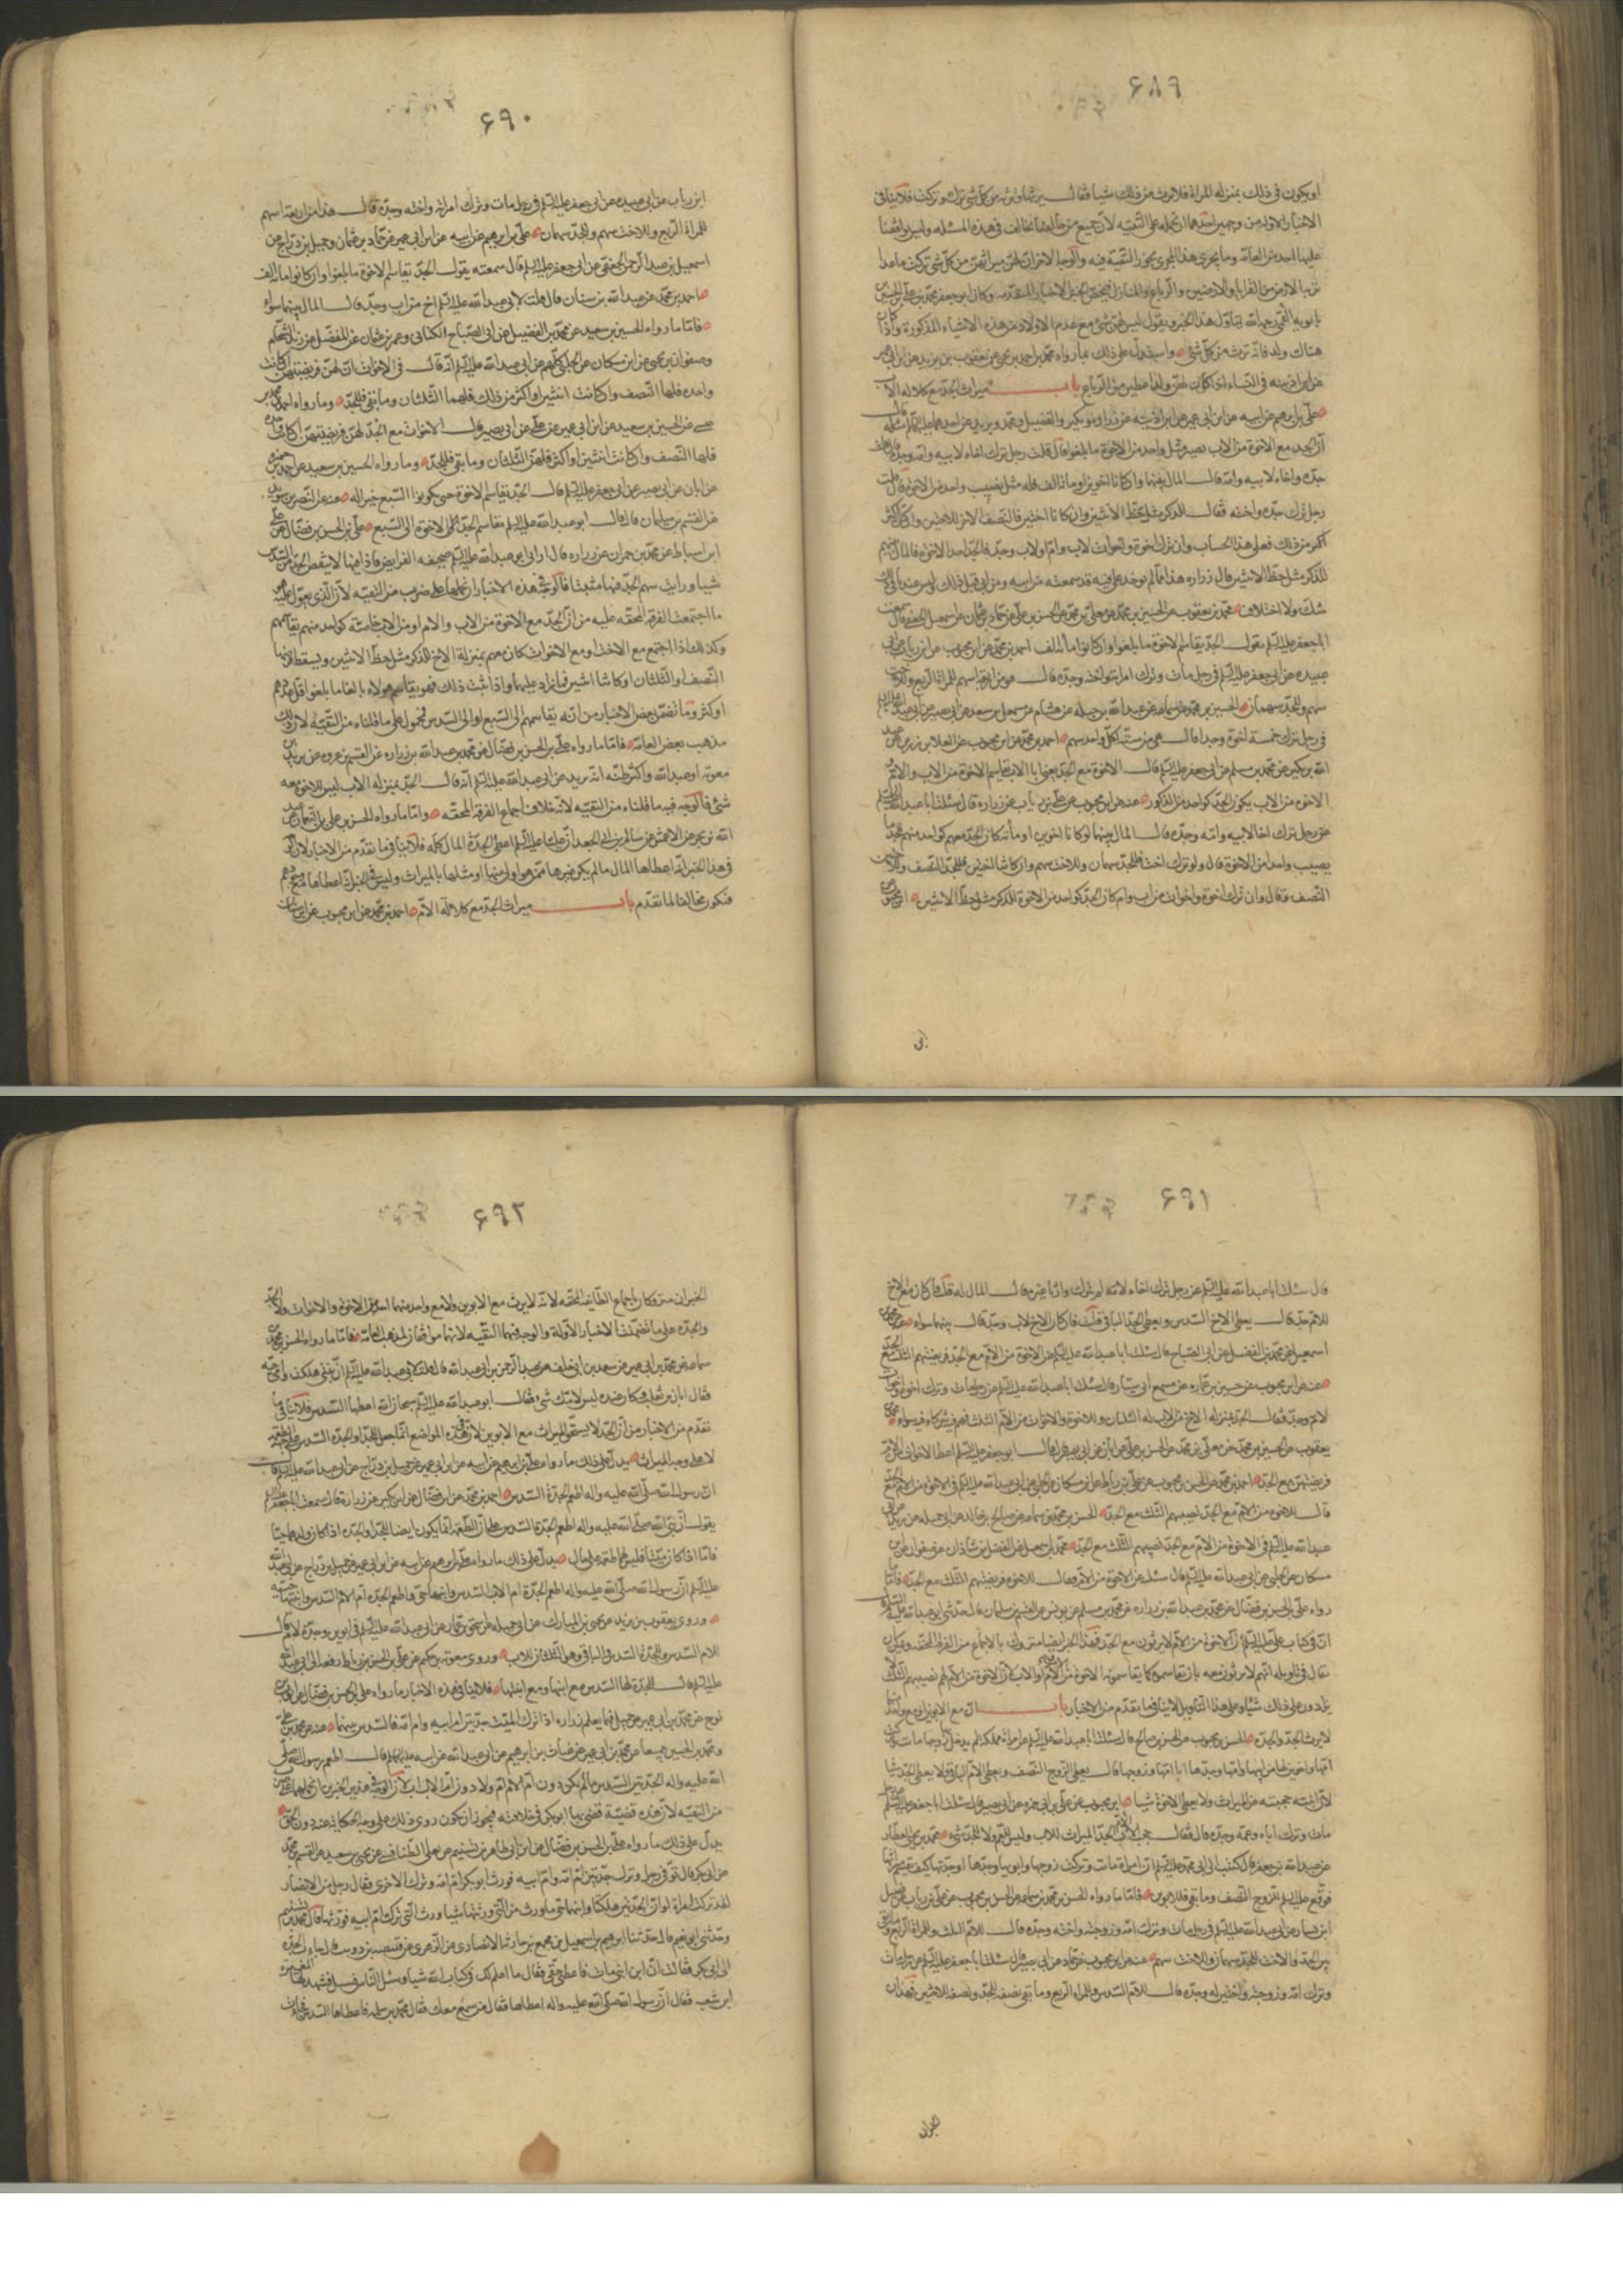 ۶۸۹
او يكون في ذلك بمنزلة المراة فلا يرث من ذلك شيا فقال يرثها وترثه من كل شي ترك وتركت فلا ينافي
الاخبار الاولة من وجهين احدهما ان نحمله على التقيه لان جميع من خالفنا يخالف في هذه المسئله وليس يوافقنا
عليها احد من العامة وما يجري هذا المجرى يجوز التقية فيه والوجه الاخر ان لهن ميراثهن من كل شي تركت ماعدا
تربة الارض من القرايا والارضين والرباع والمنازل فيخص الخبر بالاخبار المتقدمه وكان ابو جعفر محمد بن علي بن الحسين
بابويه القمي رحمه الله يتاول هذا الخبر ويقول ليس لهن شي مع عدم الاولاد من هذه الاشياء المذكورة واذا كان
هناك ولد فانه ترث من كل شي واستدل على ذلك بما رواه محمد بن احمد بن يحيى عن يعقوب بن يزيد عن ابن ابي عمير
عن ابن اذينه في النساء اذا كان لهن ولد اعطين من الرباع باب ميراث الجد مع كلالة الاب
علي بن ابرهيم عن ابيه عن ابن ابي عمير عن ابن اذينه عن زراره وبكير والفضيل ومحمد وبريد عن احدهما عليهما السلم قال
ان الجد مع الاخوة من الاب يصير مثل واحد من الاخوة ما بلغوا قال قلت رجل ترك اخاه لابيه وامه وجده
جده واخاه لابيه وامه قال المال بينهما وان كانا اخوين او مائة الف فله مثل نصيب واحد من الاخوة قال قلت
رجل ترك جده واخته فقال للذكر مثل حظ الانثيين وان كانتا اختين فالنصف للجد والنصف الاخر للاختين وان كن اكثر
اكثر من ذلك فعلى هذا الحساب وان ترك اخوة واخوات لاب وام او لاب وجد فالجد احد الاخوة فالمال بينهم
للذكر مثل حظ الانثيين قال زراره هذا مما لم يوخذ علي فيه قد سمعته من ابيه ومن قبل ذلك وليس عندنا في ذلك
شك ولا اختلاف محمد بن يعقوب عن الحسين بن محمد عن معلى بن محمد عن الحسن بن علي عن حماد بن عثمان عن اسمعيل الجعفي قال سمعت
ابا جعفر عليه السلم يقول الجد يقاسم الاخوة ما بلغوا وان كانوا مائة الف احمد بن محمد عن ابن محبوب عن ابن رياب عن ابي
عبيده عن ابي جعفر عليه السلم في رجل مات وترك امراته واخته وجده قال هو من اربعة اسهم للمراة الربع وللاخت
سهم وللجد سهمان الحسين بن محمد بن سماعه عن عبد الله بن جبله عن هشام عن اسمعيل بن سعد عن ابي بصير عن ابي عبد الله عليه السلم
في رجل ترك خمسة اخوة وجدا قال هي من ستة لكل واحد سهم احمد بن محمد عن ابن محبوب عن العلا بن رزين عن عبد
الله بن بكير عن محمد بن مسلم عن ابي جعفر عليه السلم قال الاخوة مع الجد يعني ابا الاب يقاسم الاخوة من الاب والام و
الاخوه من الاب يكون الجد كواحد من الذكور عنه عن ابن محبوب عن علي بن رياب عن زراره قال سئلت ابا عبد الله عليه السلم
عن رجل ترك اخا لابيه وامه وجده قال المال بينهما لو كانا اخوين او مائة كان الجد معهم كواحد منهم للجد ما
يصيب واحد من الاخوة قال ولو ترك اخت فللجد سهمان وللاخت سهم وان كانتا اختين فللجد النصف وللاختين
النصف وقال وان ترك اخوة واخوات من اب وام كان الجد كواحد من الاخوة للذكر مثل حظ الانثيين ابن محبوب
۶۹۰
ابن رياب عن ابي عبيده عن ابي جعفر عليه السلم في رجل مات وترك امراته واخته وجده قال هذا من اربعة اسهم
للمراة الربع وللاخت سهم وللجد سهمان علي بن ابرهيم عن ابيه عن ابن ابي عمير عن حماد بن عثمان وجميل بن دراج عن
اسمعيل بن عبد الرحمن الجعفي عن ابي جعفر عليه السلم قال سمعته يقول الجد يقاسم الاخوة ما بلغوا وان كانوا مائة الف
احمد بن محمد عن عبد الله بن سنان قال قلت لابي عبد الله عليه السلم اخ من اب وجد قال المال بينهما سواء
فاما ما رواه الحسين بن سعيد عن محمد بن الفضيل عن ابي الصباح الكناني وعمر بن عثمان عن المفضل عن زيد الشحام
وصفوان بن يحيى عن ابن مسكان عن الحلبي كلهم عن ابي عبد الله عليه السلم انه قال في الاخوات ان لهن فريضتهن ان كانت
واحده فلها النصف وان كانت اثنتين او اكثر من ذلك فلهما الثلثان وما بقي فللجد وما رواه احمد بن محمد بن
عيسى عن الحسين بن سعيد عن ابن ابي عمير عن علي عن ابي بصير قال الاخوات مع الجد لهن فريضتهن ان كانت واحده
فلها النصف وان كانت اثنتين او اكثر فلهن الثلثان وما بقي فللجد وما رواه الحسين بن سعيد عن احمد بن حمزه
عن ابان عن ابي بصير عن ابي جعفر عليه السلم قال الجد يقاسم الاخوة حتى يكون السبع خيرا له عنه عن النضر بن سويد
عن القسم بن سليمان قال قال ابو عبد الله عليه السلم يقاسم الجد الاخوة الى السبع علي بن الحسن بن فضال عن علي
ابن اسباط عن محمد بن حمران عن زراره قال اراني ابو عبد الله عليه السلم صحيفه الفرايض فاذا فيها لا ينقص الجد من السدس
شيا ورايت سهم الجد فيها مثبتا فالوجه في هذه الاخبار ان نحملها على ضرب من التقيه لان الذي يعول عليه هو
ما اجتمعت الفرقه المحقه عليه من ان الجد مع الاخوة من الاب والام او من الاب خاصة كواحد منهم يقاسمهم
وكذلك اذا اجتمع مع الاخت او مع الاخوات كان معهم بمنزلة الاخ للذكر مثل حظ الانثيين ويسقط فرضهما
النصف او الثلثان او كانتا اثنتين فما زاد عليهما واذا ثبت ذلك فهو يقاسم هولاء بالغا ما بلغوا قل عددهم
او كثر وما تضمن بعض الاخبار من انه يقاسمهم الى السبع او الى السدس فمحمول على ما قلناه من التقيه لان ذلك
مذهب بعض العامة فاما ما رواه علي بن الحسن بن فضال عن محمد بن عبد الله بن زراره عن القسم بن عروه عن بريد بن
معويه او عبد الله واكثر ظنه انه بريد عن ابي عبد الله عليه السلم انه قال الجد بمنزلة الاب ليس للاخوة معه
شي فالوجه فيه ما قلناه من التقيه لانه خلاف اجماع الفرقه المحقه واما ما رواه الحسن بن علي بن النعمان عن عبد
الله بن بحر عن الاعمش عن سالم بن ابي الجعد ان عليا عليه السلم اعطى الجدة المال كله فلا ينافي ما تقدم من الاخبار لانه ليس
في هذا الخبر انه اعطاها المال مالم يكن غيرها ممن هو اولى منها او مثلها بالميراث وليس في الخبر انه اعطاها مع وجودهم
فيكون مخالفا لما تقدم باب ميراث الجد مع كلالة الام احمد بن محمد عن ابن محبوب عن ابن سنان
۶۹۱
قال سئلت ابا عبد الله عليه السلم عن رجل ترك اخاه لامه لم يترك وارثا غيره قال المال له قلت فان كان مع الاخ
للام جد قال يعطى الاخ السدس ويعطى الجد الباقي قلت فان كان الاخ لاب وجد قال بينهما سواء محمد بن
اسمعيل عن محمد بن الفضيل عن ابي الصباح قال سئلت ابا عبد الله عليه السلم عن الاخوة من الام مع الجد قال فريضتهم الثلث مع الجد
عنه عن ابن محبوب عن حسين بن عماره عن مسمع ابي سيار قال سئلت ابا عبد الله عليه السلم عن رجل مات وترك اخوة واخوات
لام وجد فقال الجد بمنزلة الاخ من الاب له الثلثان وللاخوة والاخوات من الام الثلث فهم فيه شركاء سواء محمد بن
يعقوب عن الحسين بن محمد عن معلى بن محمد عن الحسن بن علي عن ابان عن ابي بصير قال قال ابو جعفر عليه السلم اعط الاخوات من الام
فريضتهن مع الجد احمد بن محمد عن الحسن بن محبوب عن علي بن رباط عن ابن مسكان عن الحلبي عن ابي عبد الله عليه السلم في الاخوة من الام مع الجد
قال للاخوة من الام مع الجد نصيبهم الثلث مع الجد الحسن بن محمد بن سماعه عن صالح بن خالد عن ابي جميله عن زيد عن ابي
عبد الله عليه السلم في الاخوة من الام مع الجد نصيبهم الثلث مع الجد محمد بن اسمعيل عن الفضل بن شاذان عن صفوان عن ابن
مسكان عن الحلبي عن ابي عبد الله عليه السلم قال سئل عن الاخوة من الام فقال للاخوة فريضتهم الثلث مع الجد فاما ما
رواه علي بن الحسن بن فضال عن محمد بن عبد الله بن زراره عن محمد بن مسلم عن يونس عن القسم بن سليمان قال حدثني ابو عبد الله عليه السلم
ان في كتاب علي عليه السلم ان الاخوة من الام لا يرثون مع الجد فهذا الخبر ايضا متروك بالاجماع من الفرقة المحقه ويمكن ان
يقال في تاويله انهم لا يرثون معه بان يقاسموه كما يقاسمونه الاخوة من الاب والام او الاب لان الاخوة من الام لهم نصيبهم الثلث لا
يزادون على ذلك شيا وعلى هذا التاويل لا ينافي ما تقدم من الاخبار باب ان مع الابوين او مع واحد منهما
لا يرث الجد والجدة الحسن بن محبوب عن الحسن بن صالح قال سئلت ابا عبد الله عليه السلم عن امراة مملكة لم يدخل بها زوجها ماتت وتركت
امها واخوين لها من ابيها وامها وجدها ابا امها وزوجها قال يعطى الزوج النصف ويعطى الام الباقي ولا يعطى الجد شيا
لان ابنته حجبته عن الميراث ولا يعطى الاخوة شيا ابن محبوب عن علي بن ابي حمزه عن ابي بصير قال سئلت ابا جعفر عليه السلم عن رجل
مات وترك اباه وعمه وجده قال فقال حجب الاب الجد الميراث للاب وليس للعم ولا للجد شيء محمد بن يحيى العطار
عن عبد الله بن جعفر قال كتبت الى ابي محمد عليه السلم ان امراة ماتت وتركت زوجها وابويها وجدها او جدتها كيف يقسم ميراثها
فوقع عليه السلم للزوج النصف وما بقي فللابوين فاما ما رواه الحسن بن محمد بن سماعه عن الحسن بن محبوب عن علي بن رياب عن اسمعيل
ابن يسار عن ابي عبد الله عليه السلم في رجل مات وترك امه وزوجته واخته وجده قال للام الثلث وللمراة الربع وما بقي
بين الجد والاخت للجد سهمان وللاخت سهم عنه عن ابن محبوب عن حماد عن ابي بصير قال سئلت ابا جعفر عليه السلم عن رجل مات
وترك امه وزوجته واختين له وجده قال للام السدس وللمراة الربع وما بقي نصفه للجد ونصفه للاختين فهذان
۶۹۲
الخبران متروكان باجماع الطايفه المحقه لانه لا يرث مع الابوين ولا مع واحد منهما احد من الاخوة والاخوات ولا الجد
والجدة على ما تضمنت الاخبار الاولة والوجه فيهما التقيه لانهما موافقان لمذهب العامة فاما ما رواه الحسن بن محمد بن
سماعه عن محمد بن ابي عمير عن سعد بن ابي خلف عن عبد الرحمن بن ابي عبد الله قال قلت لابي عبد الله عليه السلم ان بنتي هلكت وامي حيه
فقال ابان بن تغلب وكان عنده ليس لامك شي فقال ابو عبد الله عليه السلم سبحان الله اعطها السدس فلا ينافي ما
تقدم من الاخبار من ان الجد لا يستحق الميراث مع الابوين لان في هذه المواضع انما جعل للجد او الجدة السدس على جهة الطعمه
لا على وجه الميراث يدل على ذلك ما رواه علي بن ابرهيم عن ابيه عن ابن ابي عمير عن جميل بن دراج عن ابي عبد الله عليه السلم قال
ان رسول الله صلى الله عليه واله اطعم الجدة السدس احمد بن محمد عن ابن فضال عن ابن بكير عن زرارة قال سمعت ابا جعفر عليه السلم
يقول ان نبي الله صلى الله عليه واله اطعم الجدة السدس على ان الطعمة انما يكون ايضا للجد او الجدة اذا كان ولدهما حيا
فاما اذا كان ميتا فليس لهما طعمة على حال يدل على ذلك ما رواه علي بن ابرهيم عن ابيه عن ابن ابي عمير عن جميل بن دراج عن ابي عبد الله
عليه السلم ان رسول الله صلى الله عليه واله اطعم الجدة ام الاب السدس وابنها حي واطعم الجدة ام الام السدس وابنتها حيه
وروى يعقوب بن يزيد عن يحيى بن المبارك عن ابي جميله عن اسحق بن عمار عن ابي عبد الله عليه السلم في ابوين وجدة لام قال
للام السدس وللجدة السدس وما بقي وهو الثلثان للاب وروى معويه بن حكيم عن علي بن الحسن بن رباط رفعه الى ابي عبد الله
عليه السلم قال للجدة لها السدس مع ابنها ومع ابنتها فلا ينافي هذه الاخبار ما رواه علي بن الحسن بن فضال عن ايوب بن
نوح عن محمد بن ابي عمير عن جميل فيما يعلم زراره اذا ترك الميت جدتين ام ابيه وام امه فالسدس بينهما عنه عن محمد بن علي
ومحمد بن الحسين جميعا عن محمد بن ابي عمير عن غياث بن ابرهيم عن ابي عبد الله عن ابيه عليهما السلم قال اطعم رسول الله صلى
الله عليه واله الجدتين السدس ما لم يكن دون ام الام ام ولا دون ام الاب اب لان الوجه في هذين الخبرين ان نحملهما على ضرب
من التقيه لان هذه قضية قضى بها ابو بكر في خلافته فيجوز ان يكون روى ذلك على وجه الحكاية عنه دون الحق
يدل على ذلك ما رواه علي بن الحسن بن فضال عن ابن ابي طاهر بن تسنيم عن علي الطنافسي عن يحيى بن سعيد عن القسم بن محمد
عن ابي بكر قال توفي رجل وترك جدتين ام امه وام ابيه فورث ابو بكر ام امه وترك الاخرى فقال رجل من الانصار
لقد تركت امراة لو ان الجدتين هلكتا وابنهما حي ما ورث من التي ورثتها شيا وورث التي تركت ام ابيه فورثها قال محمد بن تسنيم
وحدثني ابو نعيم قال حدثنا ابرهيم بن اسمعيل بن مجمع بن حارثه الانصاري عن الزهري عن قبيصه بن ذويب قال جاءت الجدة
الى ابي بكر فقالت ان ابن ابنتي مات فاعطني حقي فقال ما اعلم لك في كتاب الله شيا وسئل الناس فسئل فشهد لها المغيرة
ابن شعبه فقال ان رسول الله صلى الله عليه واله اعطاها فقال من سمع معك فقال محمد بن مسلمه فاعطاها السدس فجاءت